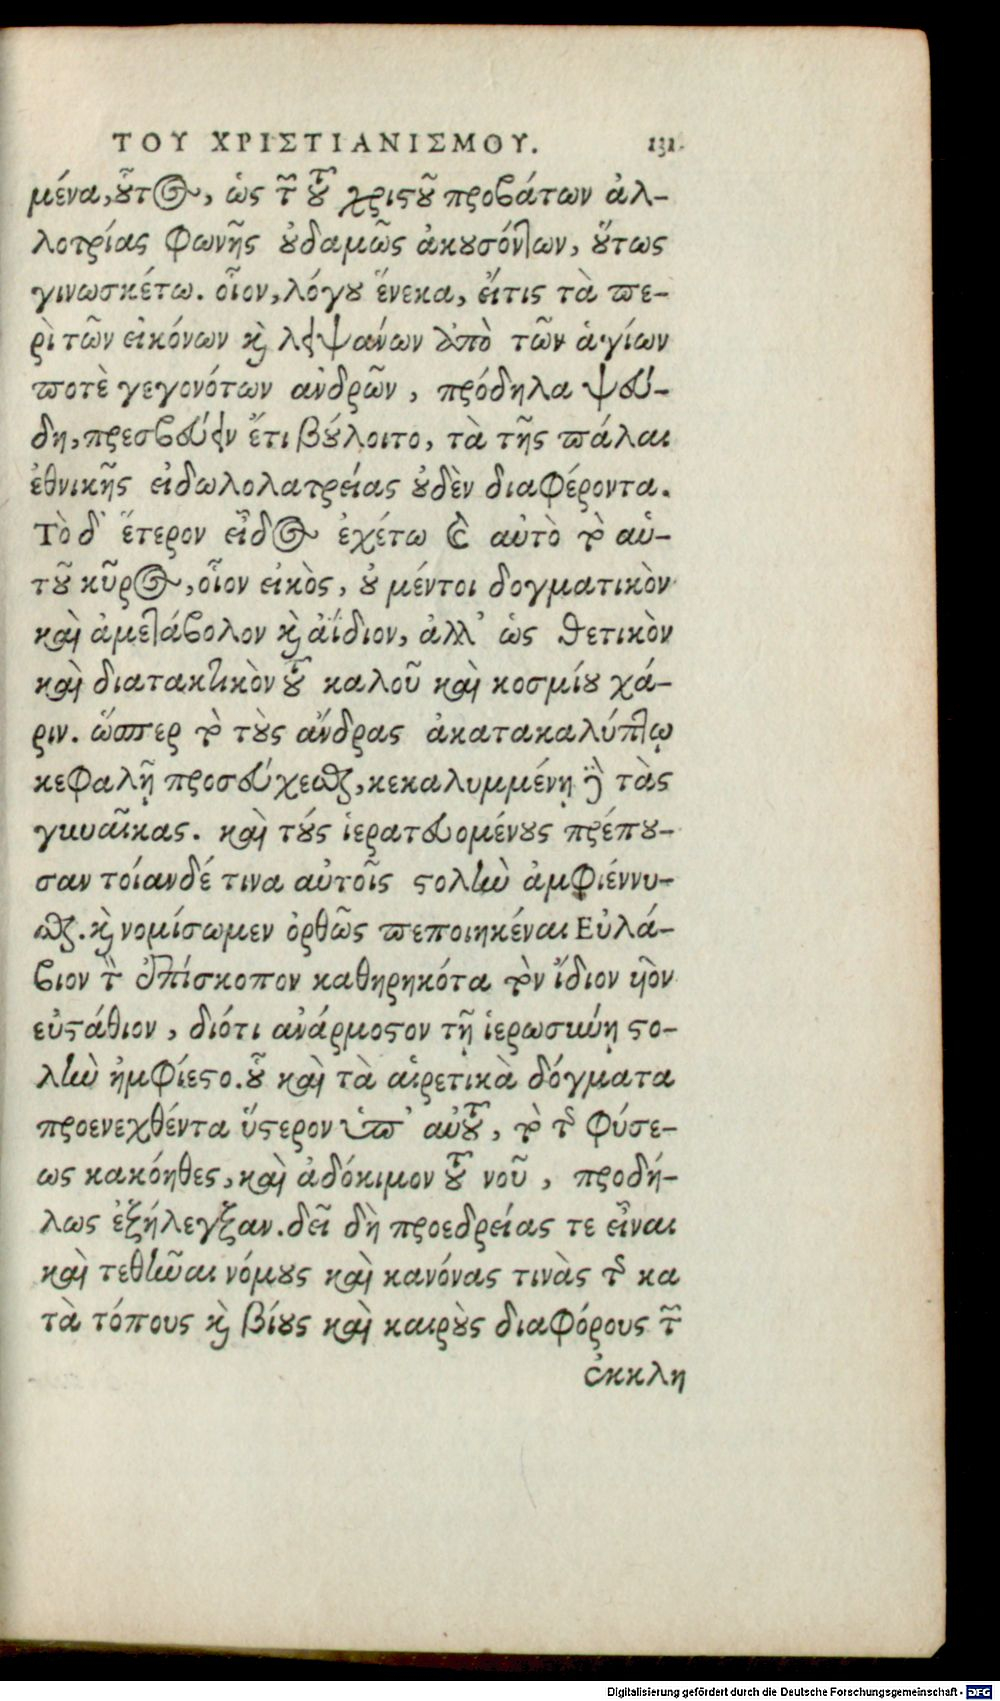 ΤΟΥ ΧΡΙΣΤΙΑΝΙΣΜΟΥ. 131.
μένα, οὗτος, ὡς τῶν τοῦ χριστοῦ προβάτων ἀλ-
λοτρίας φωνῆς οὐδαμῶς ἀκουσόντων, οὕτως
γινωσκέτω. οἷον, λόγου ἕνεκα, εἴτις τὰ πε-
ρὶ τῶν εἰκόνων καὶ λειψάνων ἀπὸ τῶν ἁγίων
ποτὲ γεγονότων ἀνδρῶν, πρόδηλα ψευ-
δη, πρεσβεύειν ἔτι βούλοιτο, τὰ τῆς πάλαι
ἐθνικῆς εἰδωλολατρείας οὐδὲν διαφέροντα.
Τὸ δ' ἕτερον εἶδος ἐχέτω καὶ αὐτὸ τὸ αὑ-
τοῦ κῦρος, οἷον εἰκὸς, οὐ μέντοι δογματικὸν
καὶ ἀμετάβολον καὶ ἀΐδιον, ἀλλ' ὡς θετικὸν
καὶ διατακτικὸν τοῦ καλοῦ καὶ κοσμίου χά-
ριν. ὥσπερ τὸ τοὺς ἄνδρας ἀκατακαλύπτῳ
κεφαλῇ προσεύχεσθαι, κεκαλυμμένῃ δὲ τὰς
γυναῖκας. καὶ τούς ἱερατευομένους πρέπου-
σαν τοίανδέ τινα αὐτοῖς στολὴν ἀμφιέννυ-
σθαι. καὶ νομίσωμεν ὀρθῶς πεποιηκέναι Εὐλά-
βιον τὸν ἐπίσκοπον καθῃρηκότα τὸν ἴδιον υἱὸν
εὐστάθιον, διότι ἀνάρμοστον τῇ ἱερωσύνῃ στο-
λὴν ἠμφίεστο. οὗ καὶ τὰ αἱρετικὰ δόγματα
προενεχθέντα ὕστερον ὑπ' αὐτοῦ, τὸ τῆς φύσε-
ως κακόηθες, καὶ ἀδόκιμον τοῦ νοῦ, προδή-
λως ἐξήλεγξαν. δεῖ δὴ προεδρείας τε εἶναι
καὶ τεθῆναι νόμους καὶ κανόνας τινὰς τῆς κα
τὰ τόπους καὶ βίους καὶ καιροὺς διαφόρους τῶν
ἐκκλη
Digitalisierung gefördert durch die Deutsche Forschungsgemeinschaft - DFG